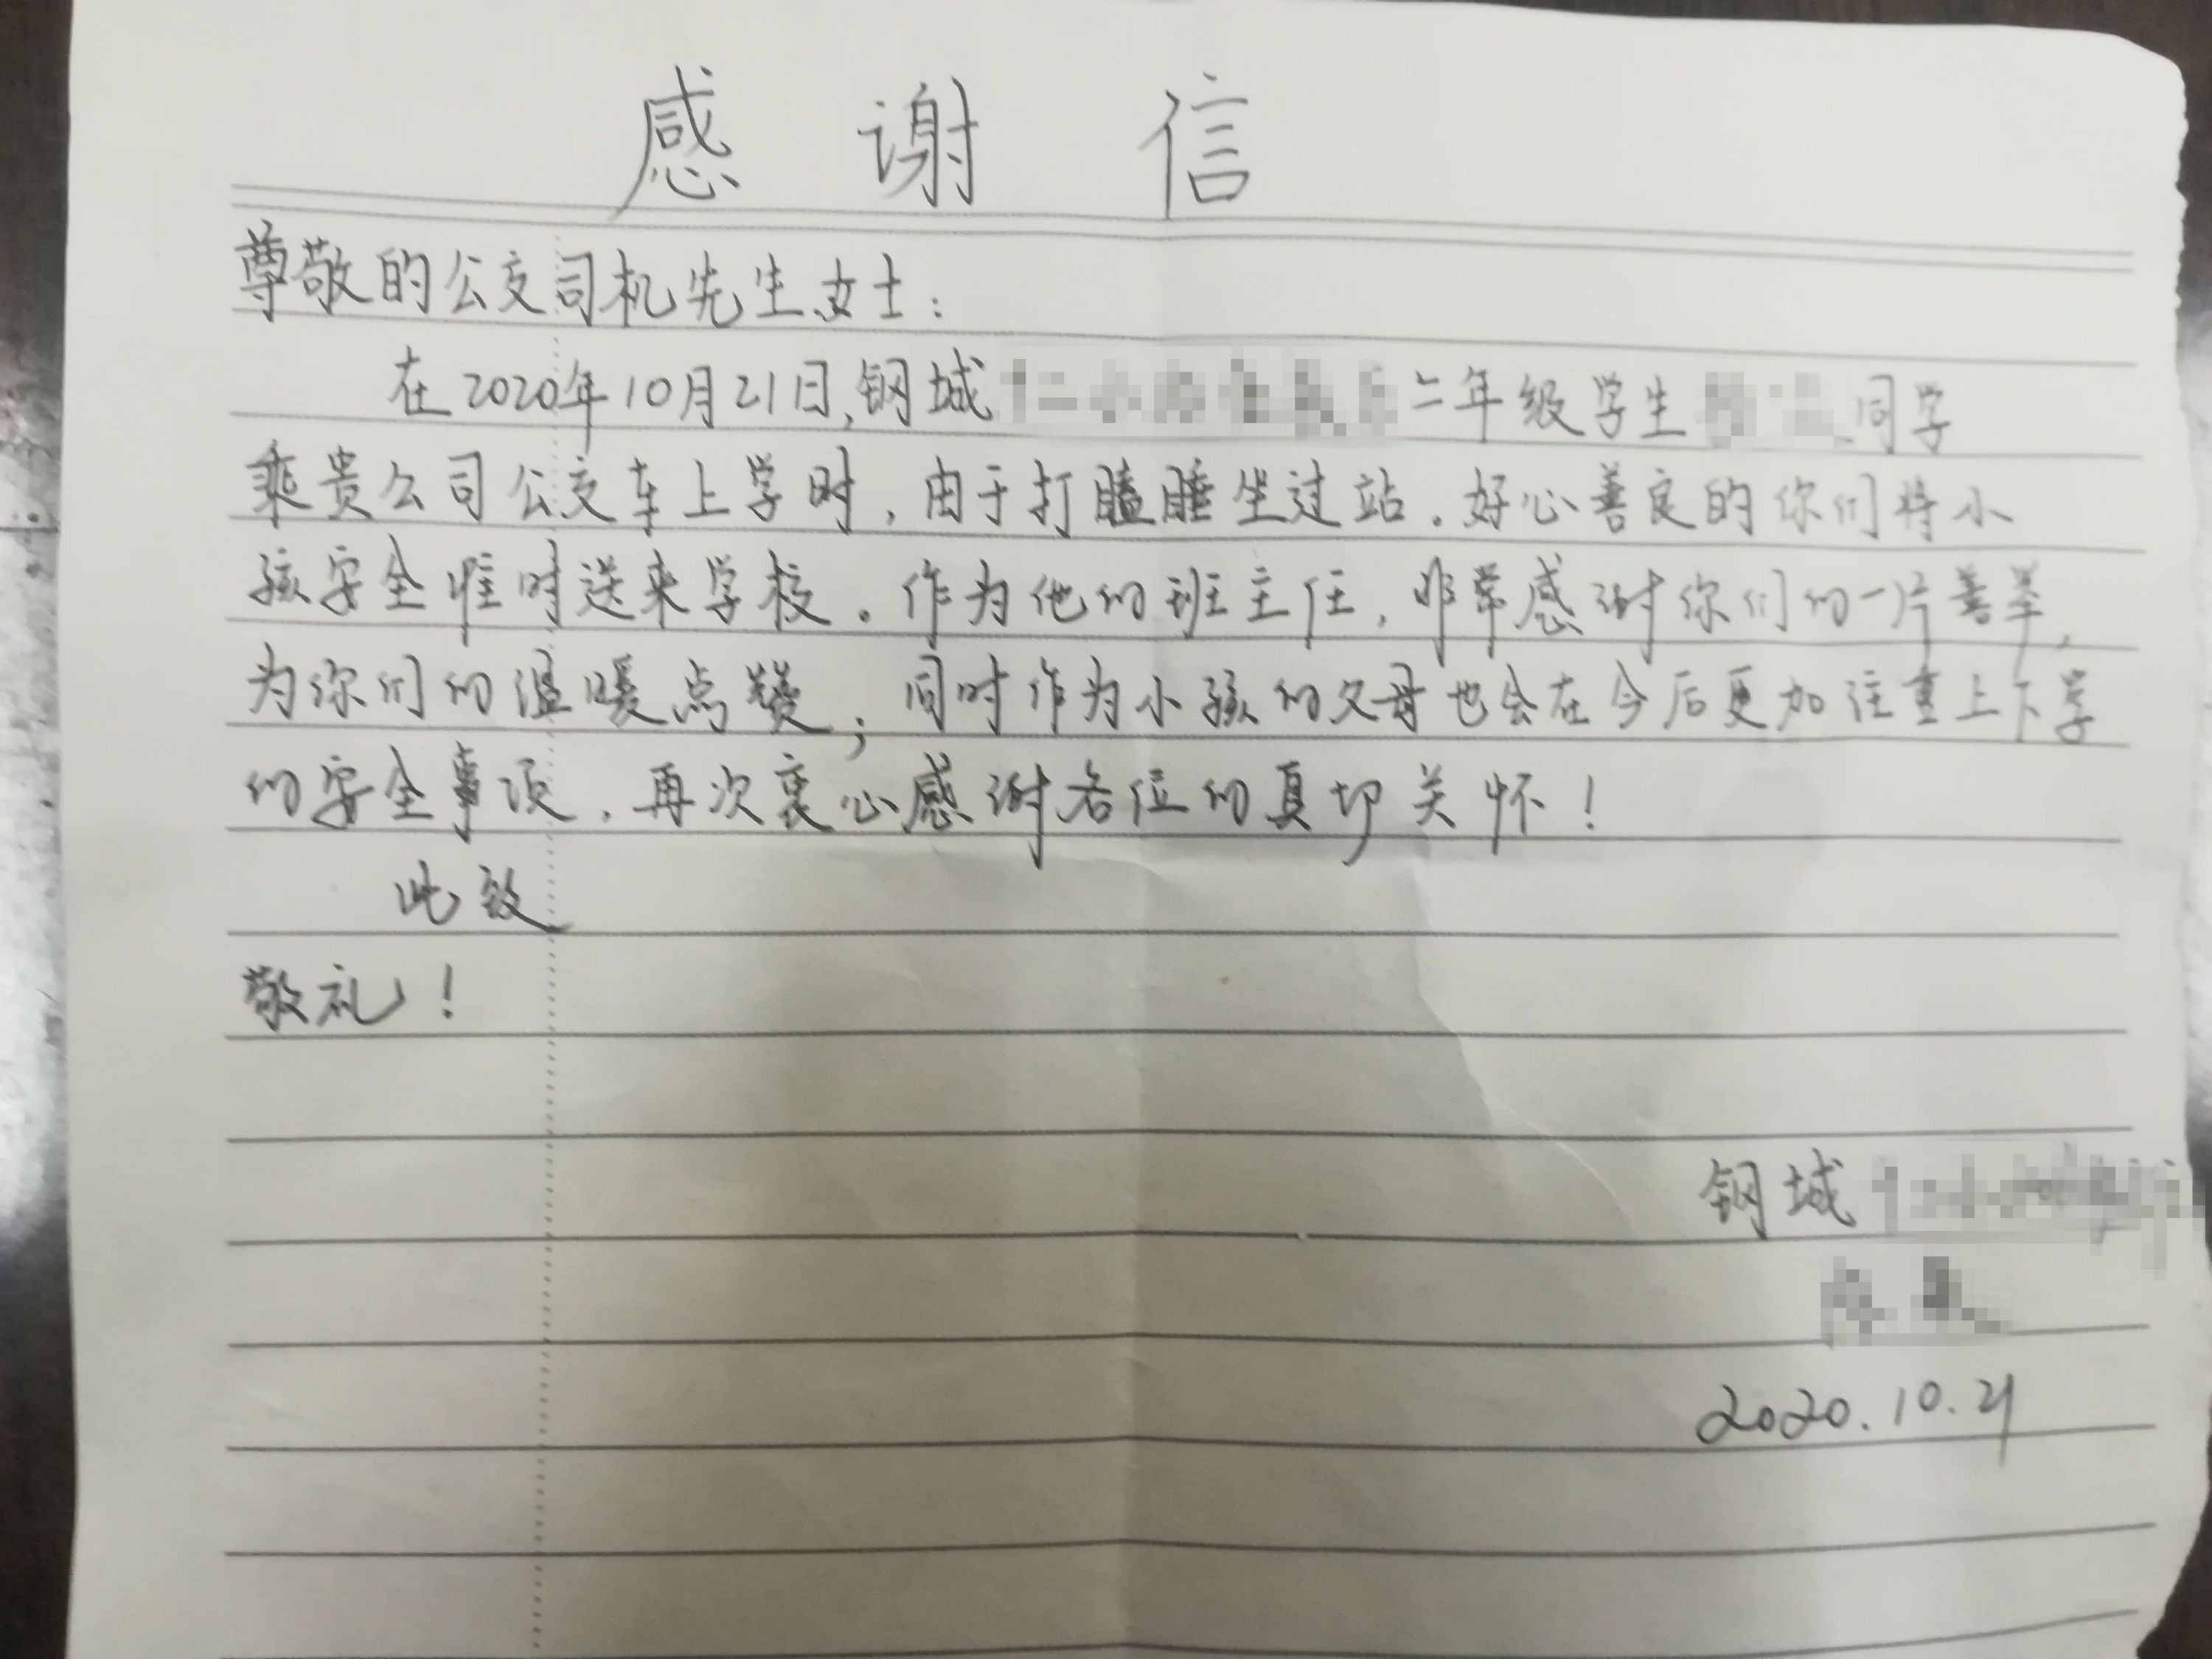 感谢信
尊敬的公交司机先生女士：
在2020年10月21日,钢城 二年级学生 同学
乘贵公司公交车上学时，由于打瞌睡坐过站．好心善良的你们将小
孩安全准时送来学校。作为他的班主任，非常感谢你们的一片善举，
为你们的温暖点赞；同时作为小孩的父母也会在今后更加注重上下学
的安全事项．再次衷心感谢各位的真切关怀！
此致
敬礼！
钢城
2020.10.21